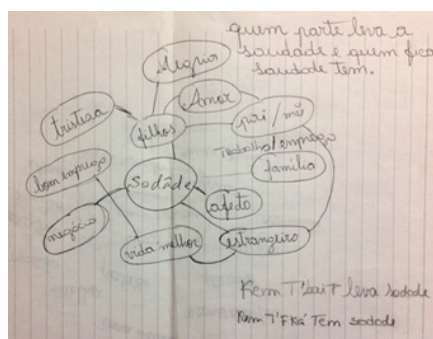 quem parte leva a
saudade e quem fica
saudade tem.
Alegria
Amor
tristeza
filhos
pai / mãe
Trabalho/emprego
família
bom emprego
Sodade
afeto
negócio
vida melhor
estrangeiro
Kem T'bai T leva sodade
Kem T'FKá Tem sodade